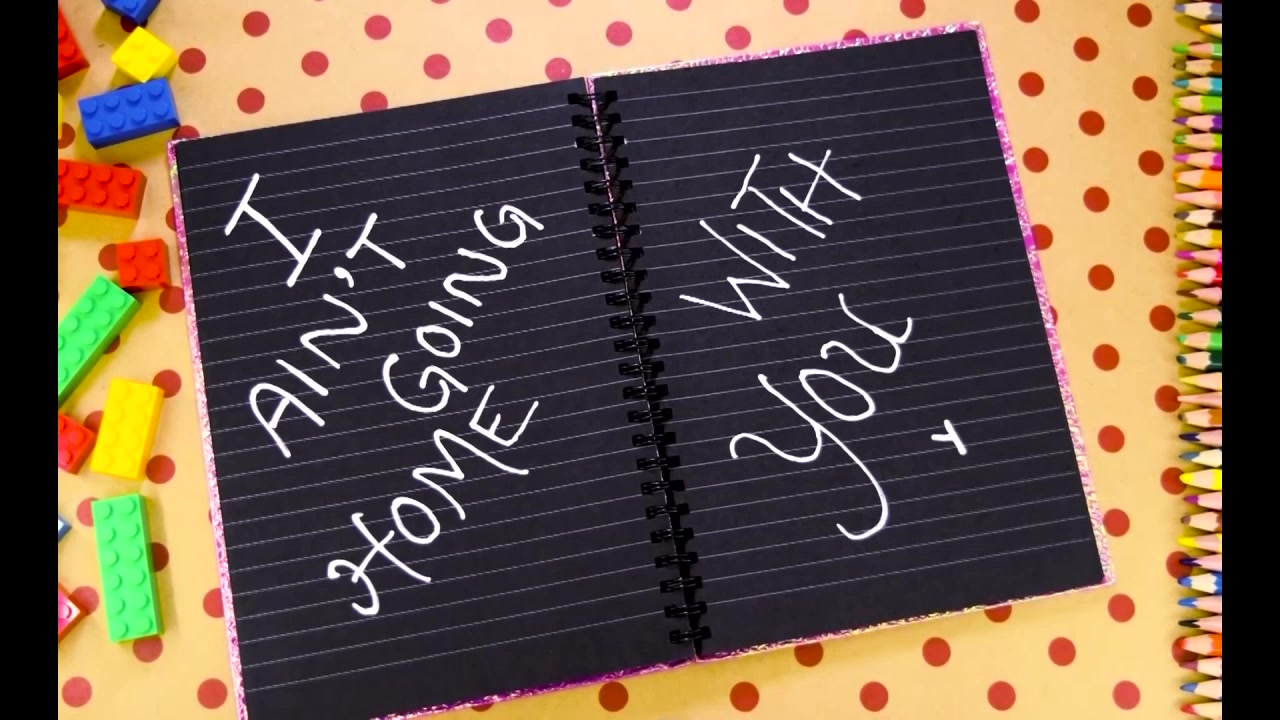 I
AIN'T
GOING
HOME
WITH
YOU
x